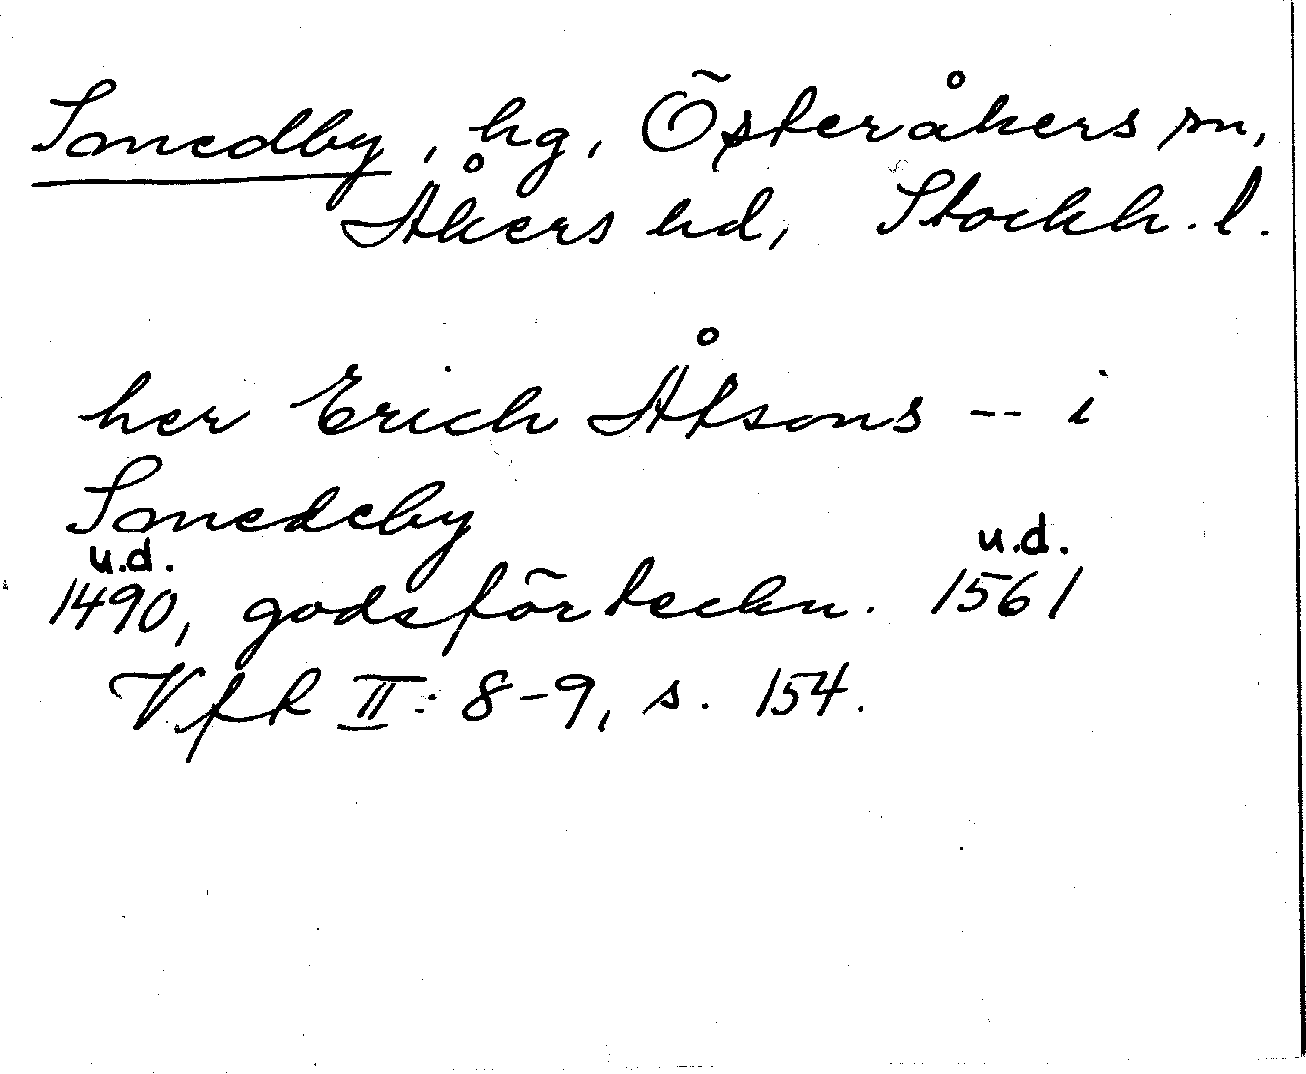 Smedby, hg, Österåkers sn,
Åkers hd, Stockh. l.
her Erich Åtsons -- i
Smedeby
u.d. u.d.
1490, godsförteckn. 1561
VfR II: 8-9, s. 154.